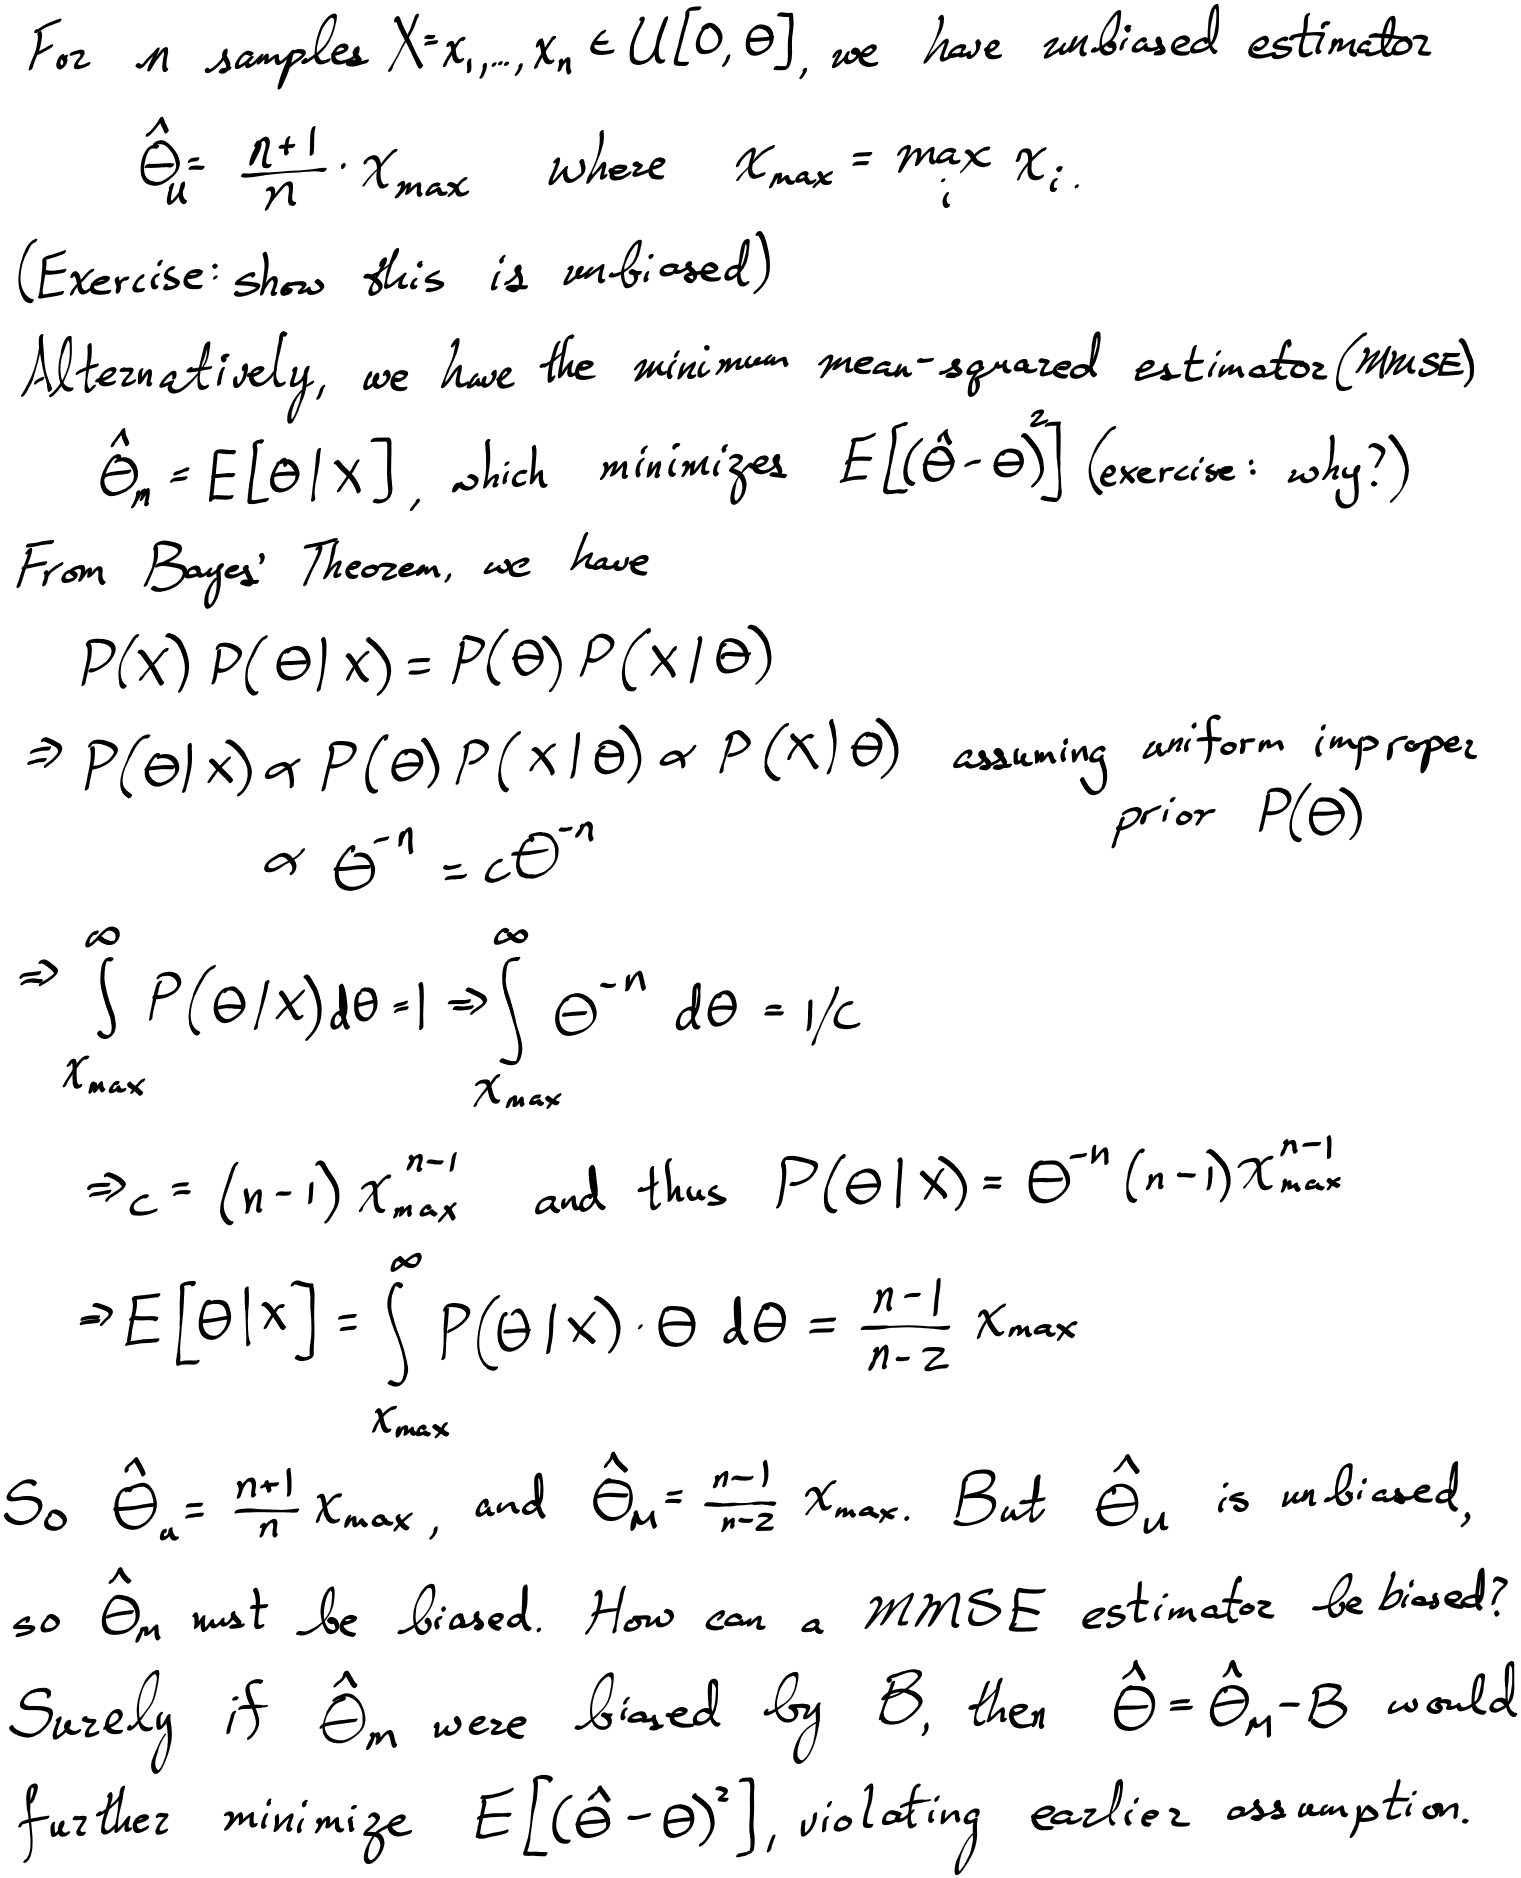 For n samples X=x₁,...,xₙ ∈ U[0,θ], we have unbiased estimator
θ̂ᵤ = (n+1)/n · x_max where x_max = max_i x_i.
(Exercise: show this is unbiased)
Alternatively, we have the minimum mean-squared estimator (MMSE)
θ̂_m = E[θ|X], which minimizes E[(θ̂-θ)²] (exercise: why?)
From Bayes' Theorem, we have
P(X) P(θ|X) = P(θ) P(X|θ)
⇒ P(θ|X) ∝ P(θ) P(X|θ) ∝ P(X|θ) assuming uniform improper
prior P(θ)
∝ θ⁻ⁿ = cθ⁻ⁿ
⇒ ∫_{x_max}^∞ P(θ|X)dθ = 1 ⇒ ∫_{x_max}^∞ θ⁻ⁿ dθ = 1/c
⇒ c = (n-1) x_max^{n-1} and thus P(θ|X) = θ⁻ⁿ (n-1) x_max^{n-1}
⇒ E[θ|X] = ∫_{x_max}^∞ P(θ|X)·θ dθ = (n-1)/(n-2) x_max
So θ̂ᵤ = (n+1)/n x_max, and θ̂_M = (n-1)/(n-2) x_max. But θ̂ᵤ is unbiased,
so θ̂_M must be biased. How can a MMSE estimator be biased?
Surely if θ̂_m were biased by B, then θ̂ = θ̂_M - B would
further minimize E[(θ̂-θ)²], violating earlier assumption.